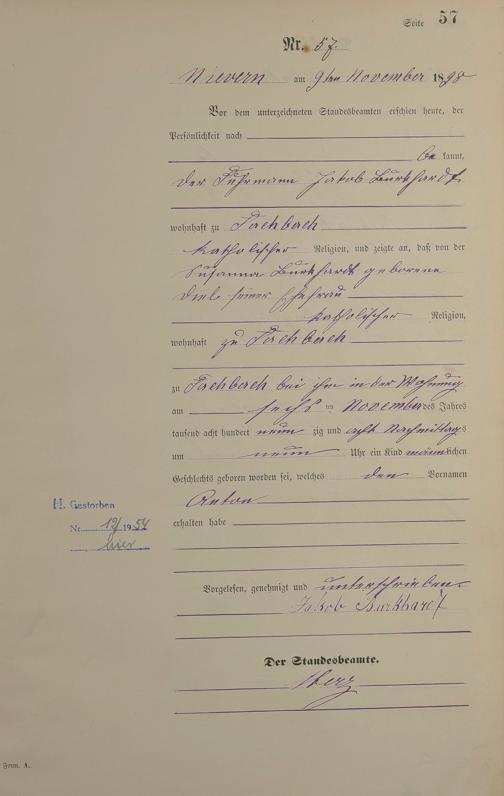 Seite 57
Nr. 57.
Nievern am 9ten November 1898
Vor dem unterzeichneten Standesbeamten erschien heute, der
Persönlichkeit nach
be kannt,
der Fuhrmann Jakob Burkhardt
wohnhaft zu Fachbach
katholischer Religion, und zeigte an, daß von der
Susanna Burkhardt geborene
Diel seiner Ehefrau
katholischer Religion,
wohnhaft zu Fachbach
zu Fachbach bei ihm in der Wohnung
am sechs ten November des Jahres
tausend acht hundert neun zig und acht Nachmittags
um neun Uhr ein Kind männlichen
Geschlechts geboren worden sei, welches den Vornamen
Anton
H. Gestorben
Nr. 12/1954
hier
erhalten habe
Vorgelesen, genehmigt und unterschrieben.
Jakob Burkhardt
Der Standesbeamte.
Form. A.